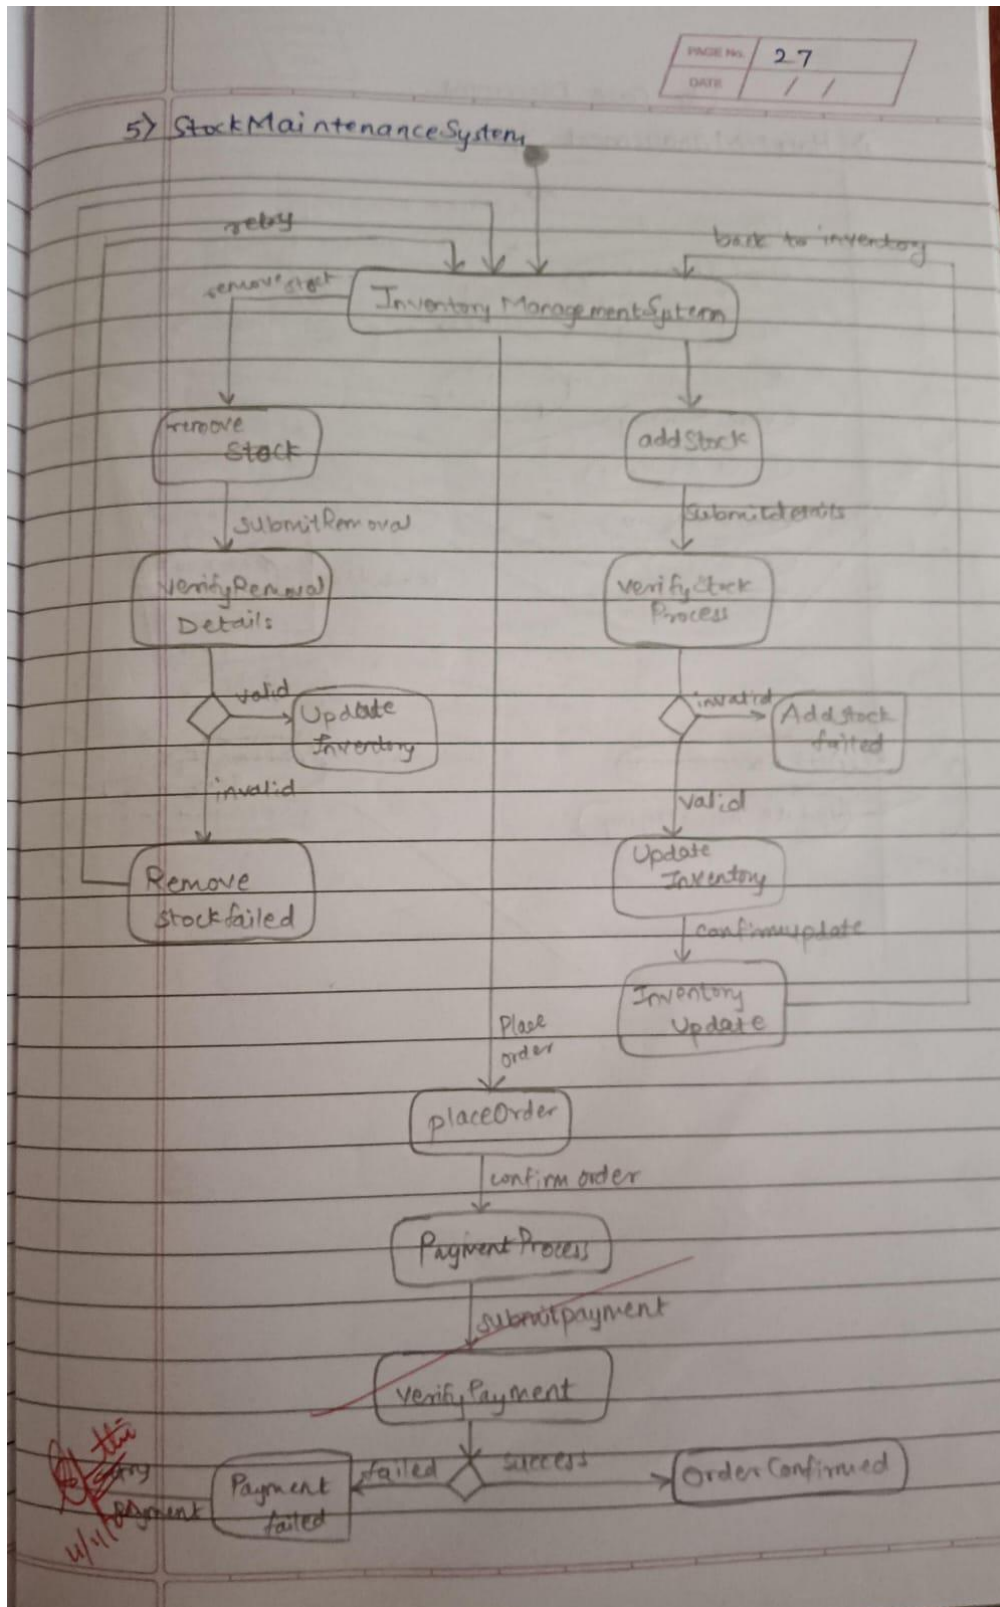 PAGE No. 27
DATE / /
5) StockMaintenanceSystem
retry
back to inventory
remove stock
Inventory ManagementSystem
remove
Stock
addStock
submitRemoval
submitdetails
verifyRemoval
Details
verifyStock
Process
valid
Update
Inventory
invalid
Addstock
failed
invalid
valid
Remove
stockfailed
Update
Inventory
confirmupdate
Inventory
Update
Place
order
placeOrder
confirm order
PaymentProcess
submitpayment
verifyPayment
failed
success
Payment
failed
OrderConfirmed
payment